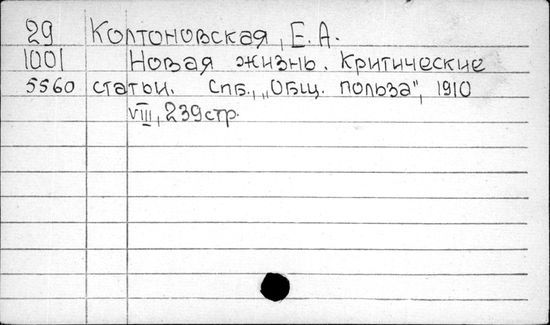 29 Колтоновская, Е.А.
1001 Новая жизнь. Критические
5560 статьи. Спб., „Общ. польза", 1910
VIII, 239стр.